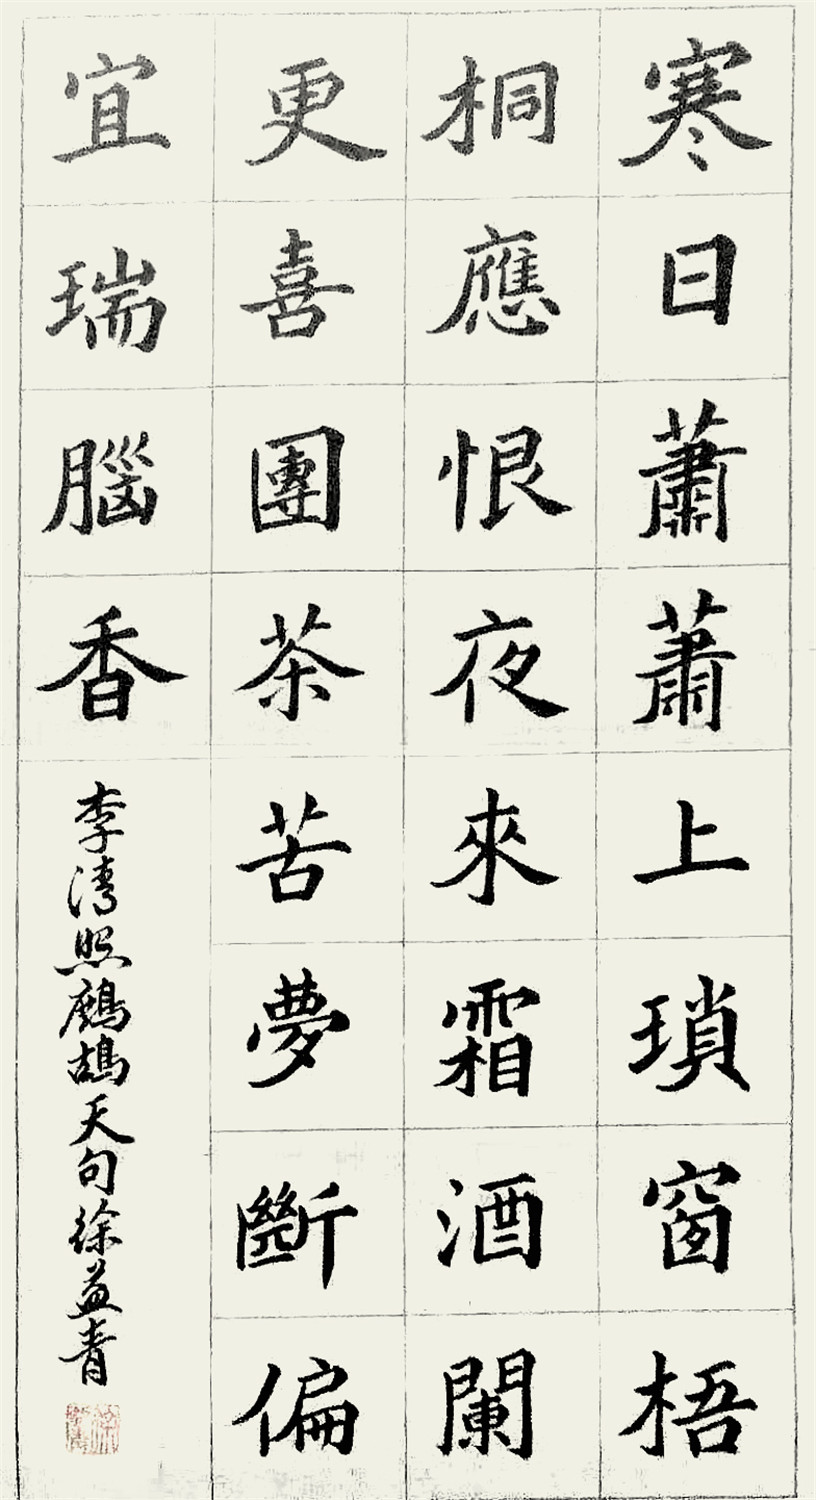 寒日蕭蕭上瑣窗梧
桐應恨夜來霜酒闌
更喜團茶苦夢斷偏
宜瑞腦香
李清照鷓鴣天句徐益青